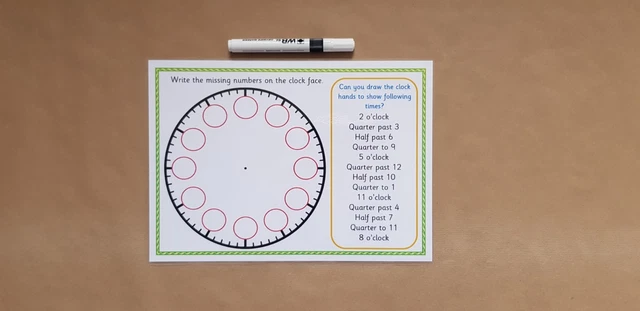 Write the missing numbers on the clock face.
Can you draw the clock
hands to show following
times?
2 o'clock
Quarter past 3
Half past 6
Quarter to 9
5 o'clock
Quarter past 12
Half past 10
Quarter to 1
11 o'clock
Quarter past 4
Half past 7
Quarter to 11
8 o'clock